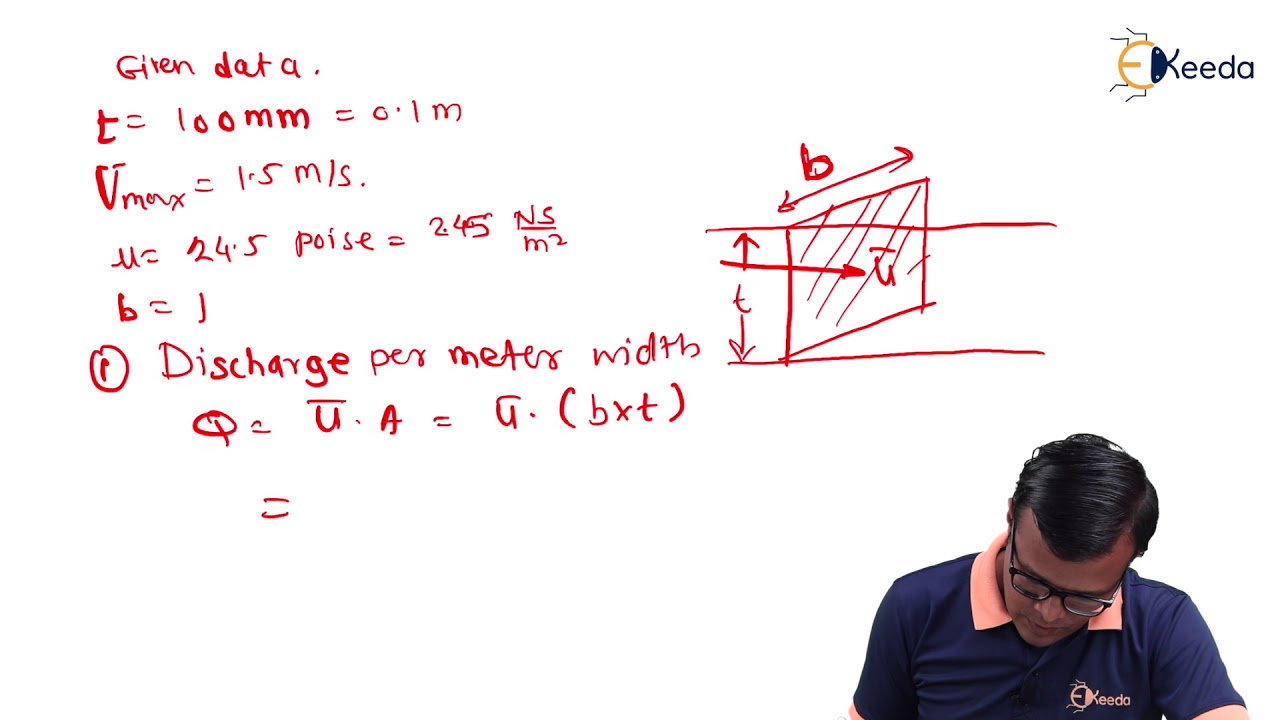 Given data.
t = 100mm = 0.1m
Umax = 1.5 m/s.
μ = 24.5 poise = 2.45 NS/m²
b = 1
① Discharge per meter width
Q = Ū . A = Ū . (b×t)
=
b
t
Ū
EKeeda
EKeeda